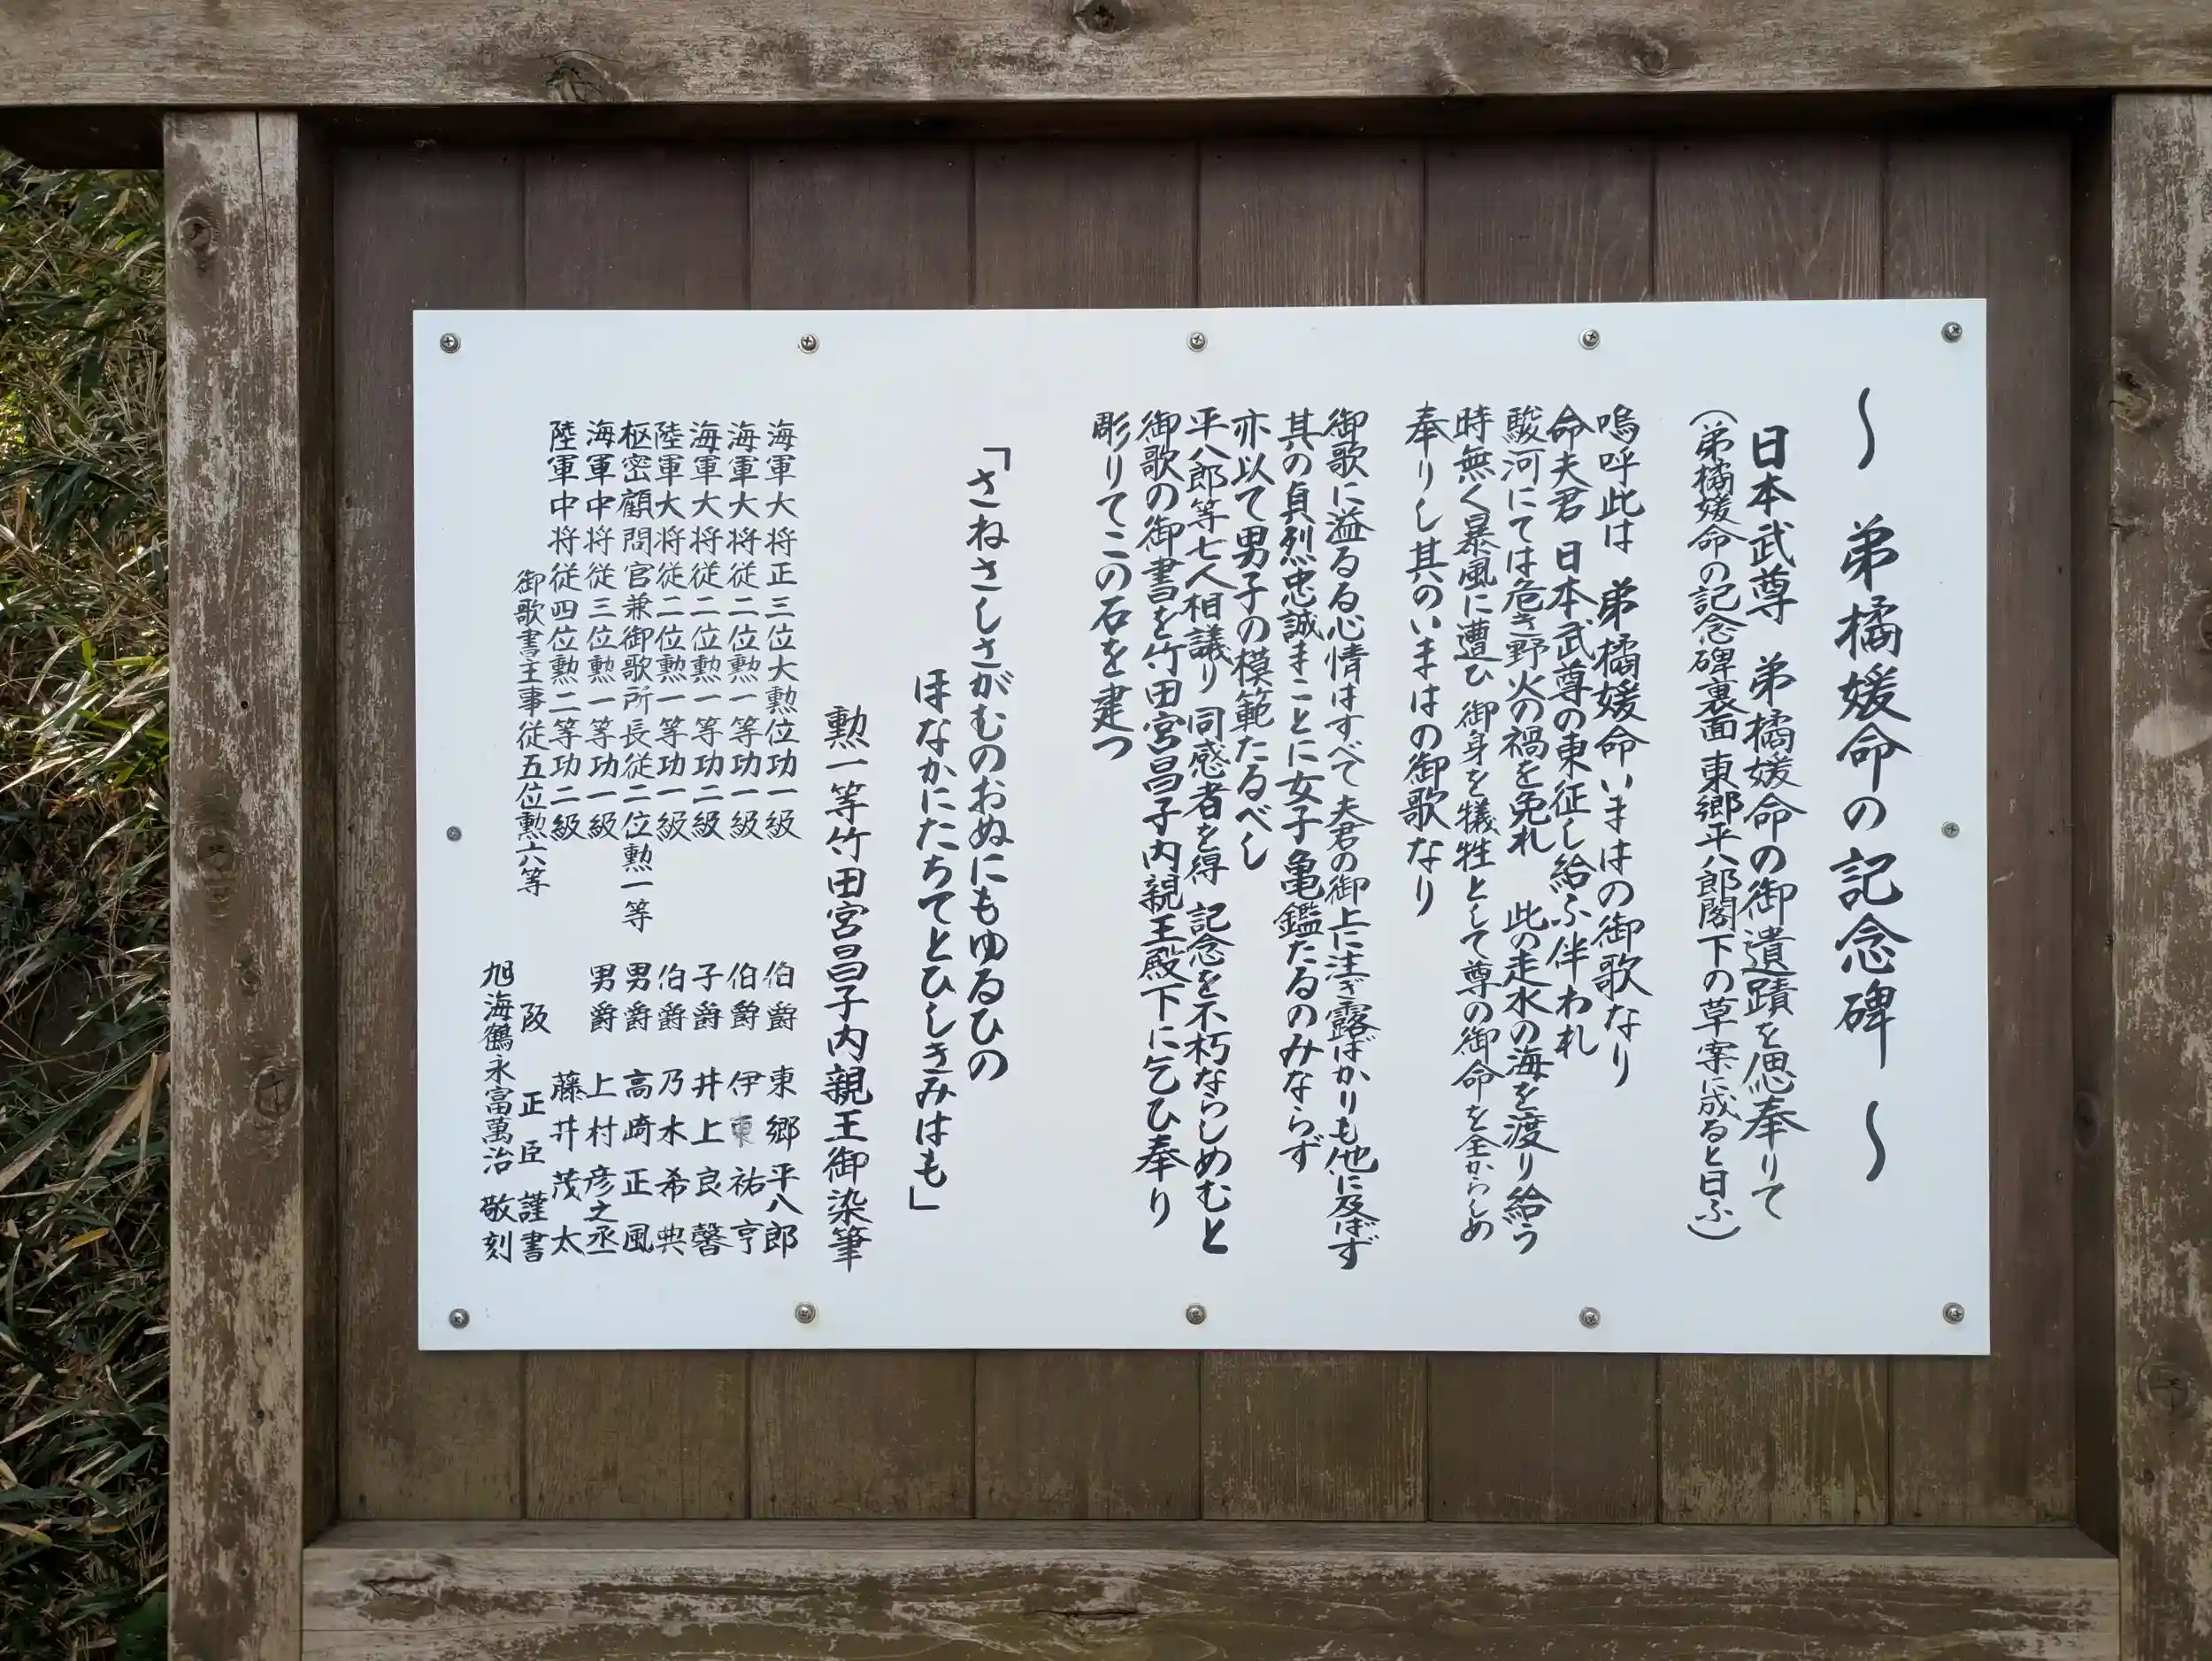 ～ 弟橘媛命の記念碑 ～
日本武尊 弟橘媛命の御遺蹟を偲奉りて
（弟橘媛命の記念碑裏面 東郷平八郎閣下の草案に成ると曰ふ）
嗚呼此は 弟橘媛命いまはの御歌なり
命夫君 日本武尊の東征し給ふ伴われ
駿河にては危き野火の禍を免れ 此の走水の海を渡り給う
時無く暴風に遭ひ 御身を犠牲として尊の御命を全からしめ
奉りし其のいまはの御歌なり
御歌に溢るる心情はすべて夫君の御上に注ぎ露ばかりも他に及ばず
其の貞烈忠誠まことに女子亀鑑たるのみならず
亦以て男子の模範たるべし
平八郎等七人相議り 同感者を得 記念を不朽ならしめむと
御歌の御書を竹田宮昌子内親王殿下に乞ひ奉り
彫りてこの石を建つ
「さねさしさがむのおぬにもゆるひの
ほなかにたちてとひしきみはも」
勲一等竹田宮昌子内親王御染筆
海軍大将正三位大勲位功一級 伯爵 東郷平八郎
海軍大将従二位勲一等功一級 伯爵 伊東祐亨
海軍大将従二位勲一等功二級 子爵 井上良馨
陸軍大将従二位勲一等功一級 伯爵 乃木希典
枢密顧問官兼御歌所長従二位勲一等 男爵 高崎正風
海軍中将従三位勲一等功一級 男爵 上村彦之丞
陸軍中将従四位勲二等功二級 藤井茂太
御歌書主事従五位勲六等 阪正臣 謹書
旭海鶴永富萬治 敬刻